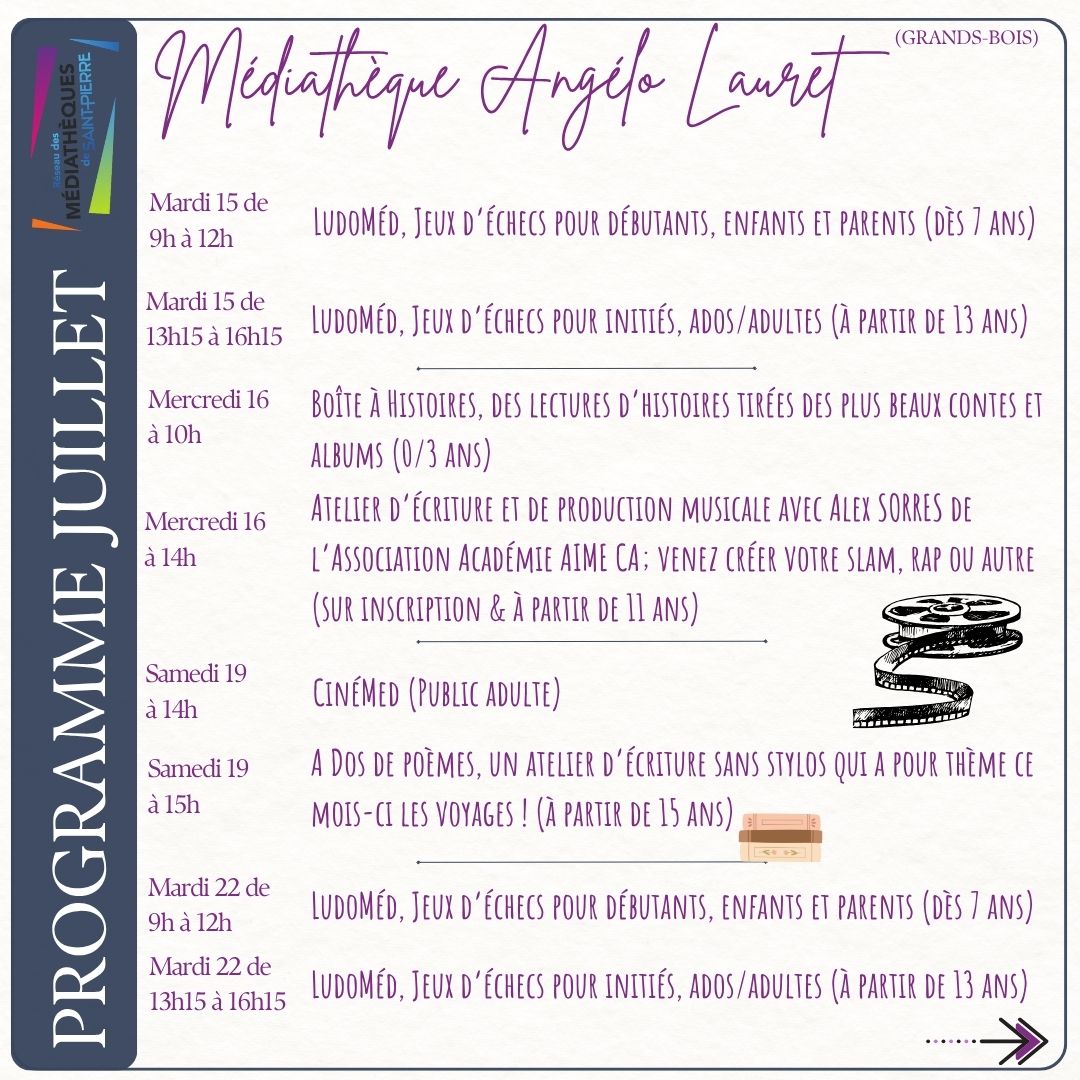 Réseau des
MÉDIATHÈQUES
de SAINT-PIERRE
PROGRAMME JUILLET
Médiathèque Angélo Lauret
(GRANDS-BOIS)
Mardi 15 de
9h à 12h
LudoMéd, Jeux d'échecs pour débutants, enfants et parents (dès 7 ans)
Mardi 15 de
13h15 à 16h15
LudoMéd, Jeux d'échecs pour initiés, ados/adultes (à partir de 13 ans)
Mercredi 16
à 10h
Boîte à Histoires, des lectures d'histoires tirées des plus beaux contes et
albums (0/3 ans)
Mercredi 16
à 14h
Atelier d'écriture et de production musicale avec Alex SORRES de
l'Association Académie AIME CA; venez créer votre slam, rap ou autre
(sur inscription & à partir de 11 ans)
Samedi 19
à 14h
CinéMed (Public adulte)
Samedi 19
à 15h
A Dos de poèmes, un atelier d'écriture sans stylos qui a pour thème ce
mois-ci les voyages ! (à partir de 15 ans)
Mardi 22 de
9h à 12h
LudoMéd, Jeux d'échecs pour débutants, enfants et parents (dès 7 ans)
Mardi 22 de
13h15 à 16h15
LudoMéd, Jeux d'échecs pour initiés, ados/adultes (à partir de 13 ans)